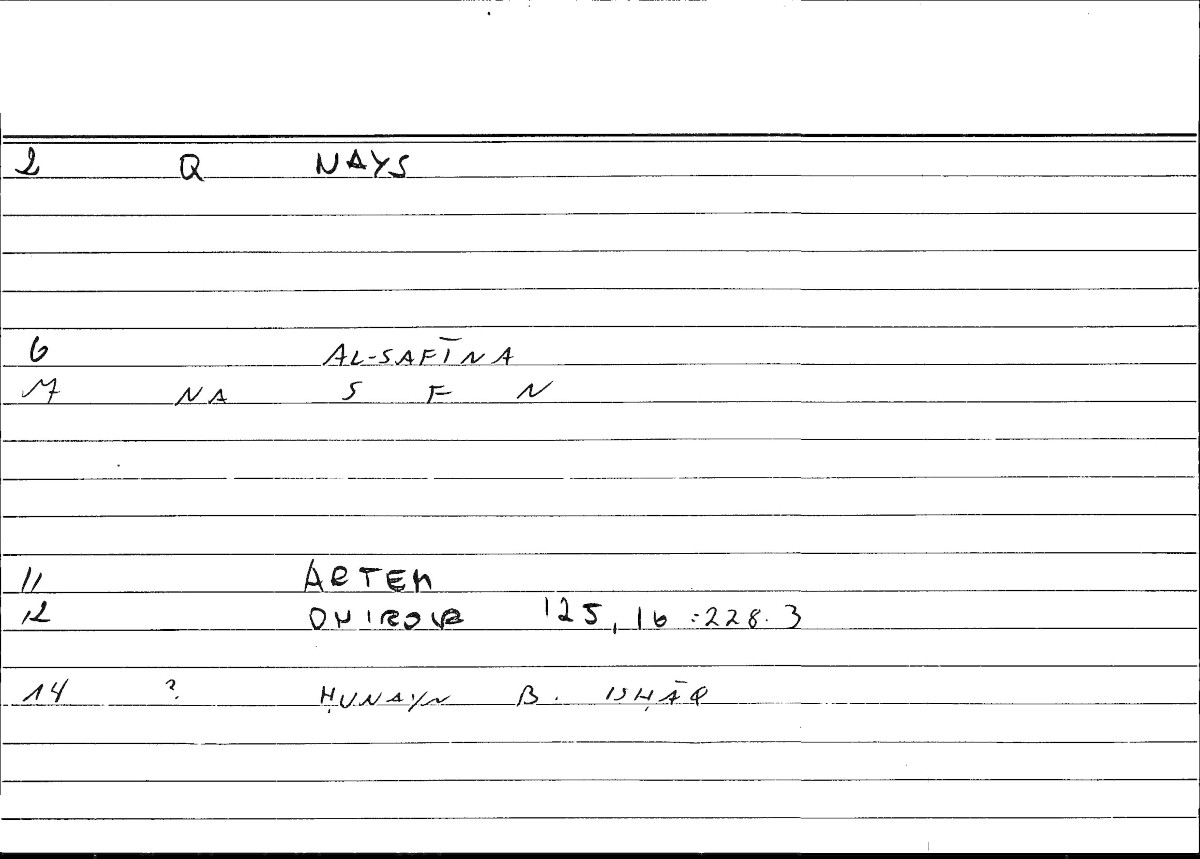 2 Q NAYS
6 AL-SAFĪNA
7 NA S F N
11 ARTEM
12 ONIROCR 125,16 :228.3
14 ? ḤUNAYN B. ISḤĀQ